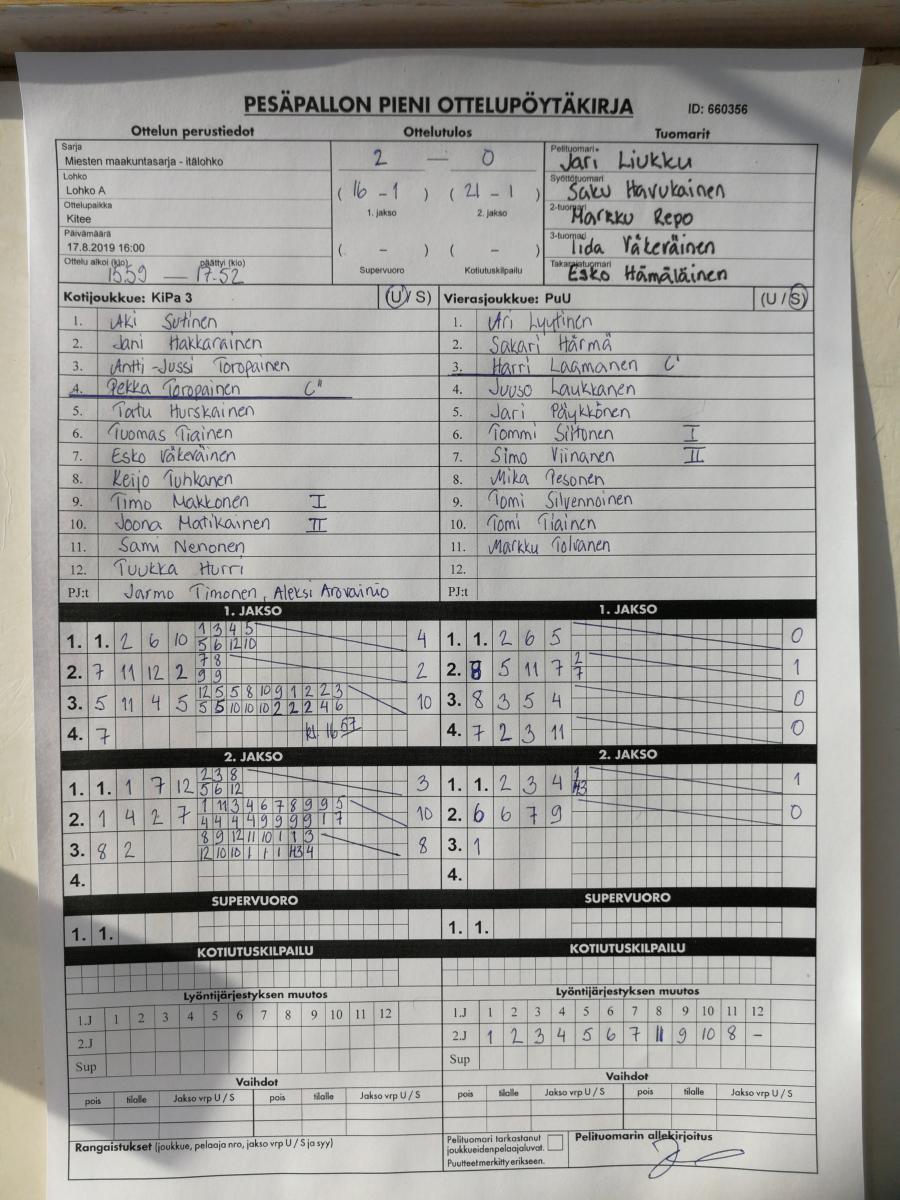 PESÄPALLON PIENI OTTELUPÖYTÄKIRJA ID: 660356
Ottelun perustiedot Ottelutulos Tuomarit
Sarja
Miesten maakuntasarja - itälohko
Lohko
Lohko A
Ottelupaikka
Kitee
Päivämäärä
17.8.2019 16:00
Ottelu alkoi (klo) päättyi (klo)
15.59 — 17.52
2 — 0
( 16 - 1 ) ( 21 - 1 )
1. jakso 2. jakso
( - ) ( - )
Supervuoro Kotiutuskilpailu
Pelituomari
Jari Liukku
Syöttötuomari
Saku Havukainen
2-tuomari
Markku Repo
3-tuomari
Iida Väkeräinen
Takarajatuomari
Esko Hämäläinen
Kotijoukkue: KiPa 3 (U / S)
1. Aki Sutinen
2. Jani Hakkarainen
3. Antti-Jussi Toropainen
4. Pekka Toropainen C"
5. Tatu Hurskainen
6. Tuomas Tiainen
7. Esko Väkeräinen
8. Keijo Tuhkanen
9. Timo Makkonen I
10. Joona Matikainen II
11. Sami Nenonen
12. Tuukka Hurri
PJ:t Jarmo Timonen, Aleksi Arovainio
Vierasjoukkue: PuU (U / S)
1. Ari Lyytinen
2. Sakari Härmä
3. Harri Laamanen C'
4. Juuso Laukkanen
5. Jari Päykkönen
6. Tommi Siltonen I
7. Simo Viinanen II
8. Mika Pesonen
9. Tomi Silvennoinen
10. Tomi Tiainen
11. Markku Tolvanen
12.
PJ:t
1. JAKSO
1. 1. 2 6 10 1 3 4 5 4
5 6 12 10
2. 7 11 12 2 7 8 2
9 9
3. 5 11 4 5 12 5 5 8 10 9 1 2 2 3 10
5 5 10 10 10 2 2 2 4 6
4. 7 kl. 16 57
1. JAKSO
1. 1. 2 6 5 0
2. 8 5 11 7 2 1
7
3. 8 3 5 4 0
4. 7 2 3 11 0
2. JAKSO
1. 1. 1 7 12 2 3 8 3
5 6 12
2. 1 4 2 7 1 11 3 4 6 7 8 9 9 5 10
4 4 4 4 9 9 9 9 1 7
3. 8 2 8 9 12 11 10 1 1 3 8
12 10 10 1 1 1 H3 4
4.
2. JAKSO
1. 1. 2 3 4 1 1
H3
2. 6 6 7 9 0
3. 1
4.
SUPERVUORO SUPERVUORO
1. 1. 1. 1.
KOTIUTUSKILPAILU KOTIUTUSKILPAILU
Lyöntijärjestyksen muutos
1.J 1 2 3 4 5 6 7 8 9 10 11 12
2.J
Sup
Lyöntijärjestyksen muutos
1.J 1 2 3 4 5 6 7 8 9 10 11 12
2.J 1 2 3 4 5 6 7 11 9 10 8 -
Sup
Vaihdot Vaihdot
pois tilalle Jakso vrp U / S pois tilalle Jakso vrp U / S
pois tilalle Jakso vrp U / S pois tilalle Jakso vrp U / S
Rangaistukset (joukkue, pelaaja nro, jakso vrp U / S ja syy)
Pelituomari tarkastanut
joukkueiden pelaajaluvat.
Puutteet merkitty erikseen.
Pelituomarin allekirjoitus